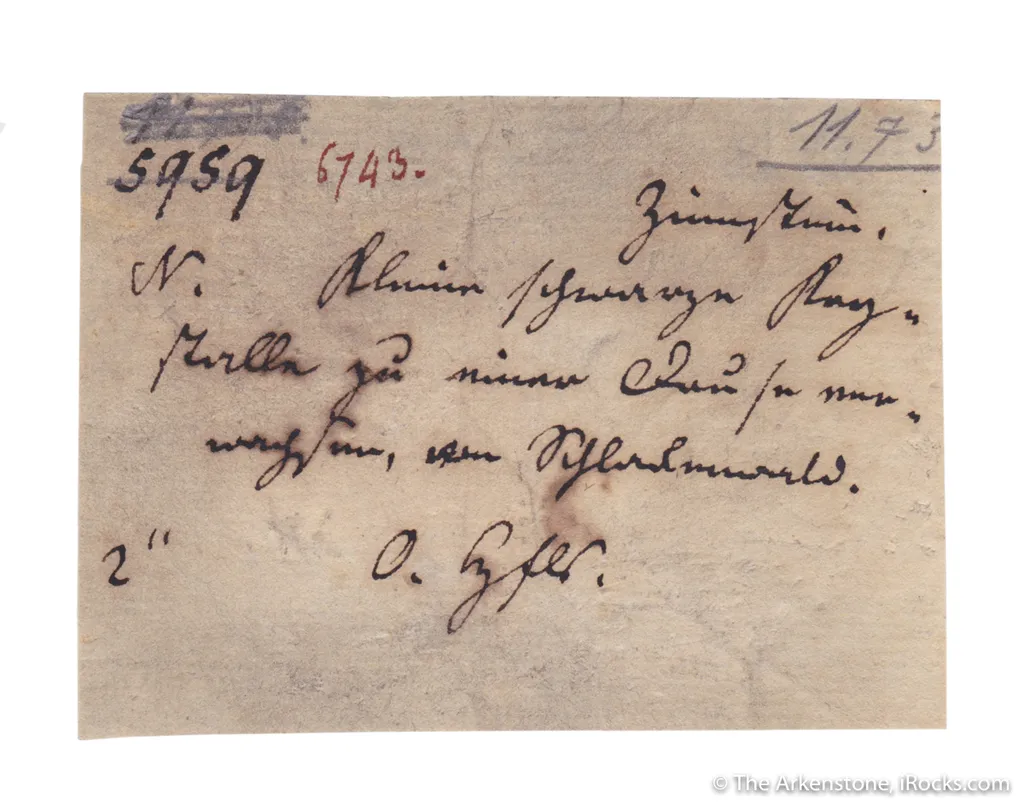 11.73
5959 6743.
Zinnstein.
N. Kleine schwarze Kry-
stalle zu einer Druse ver-
wachsen, von Schlackenwald.
2" O.
© The Arkenstone, iRocks.com